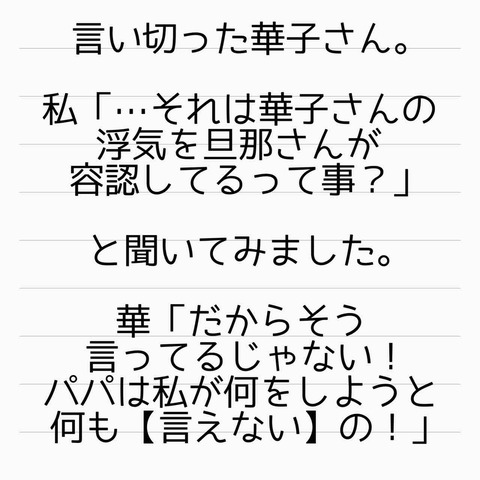 言い切った華子さん。
私「…それは華子さんの
浮気を旦那さんが
容認してるって事？」
と聞いてみました。
華「だからそう
言ってるじゃない！
パパは私が何をしようと
何も【言えない】の！」